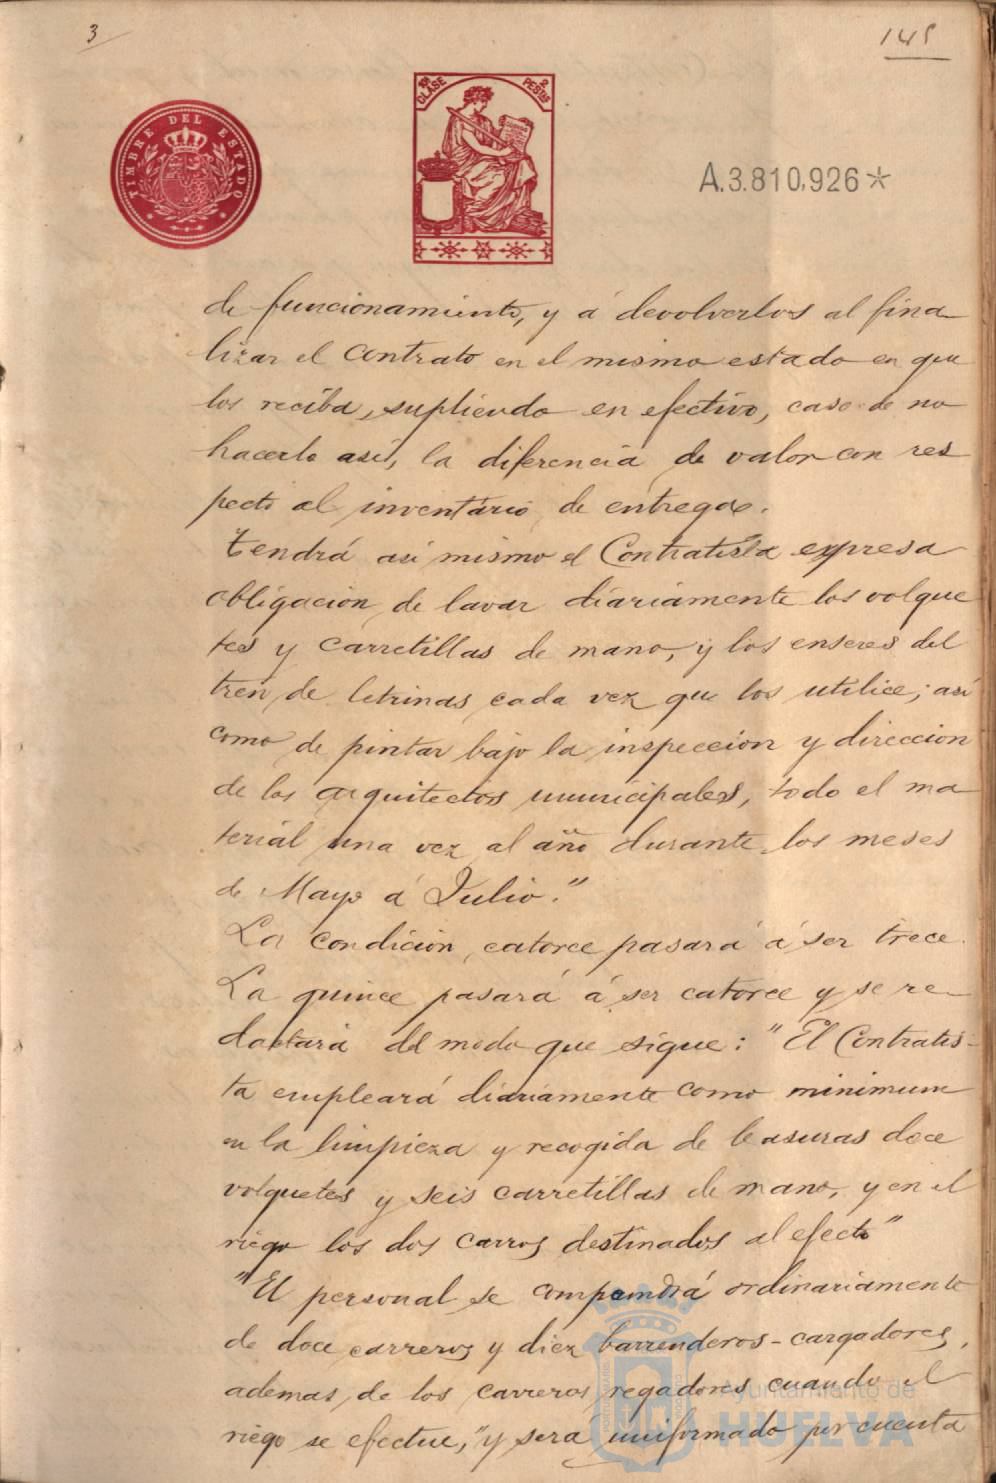 3
145
TIMBRE DEL ESTADO
10ª CLASE
2 PESTAS
A.3.810,926*
de funcionamiento, y á devolverlos al fina
lizar el contrato en el mismo estado en que
los reciba, supliendo en efectivo, caso de no
hacerlo así, la diferencia de valor con res
pecto al inventario de entrega.
Tendrá asi mismo el Contratista expresa
obligacion de lavar diariamente los volque
tes y carretillas de mano, y los enseres del
tren de letrinas cada vez que los utilice; así
como de pintar bajo la inspeccion y direccion
de los arquitectos municipales, todo el ma
terial una vez al año durante los meses
de Mayo á Julio."
La condición catorce pasará á ser trece.
La quince pasará á ser catorce y se re-
dactará del modo que sigue: "El Contratis-
ta empleará diariamente como minimum
en la limpieza y recogida de basuras doce
volquetes y seis carretillas de mano, y en el
riego los dos carros destinados al efecto"
"El personal se compondrá ordinariamente
de doce carreros y diez barrenderos-cargadores,
ademas de los carreros regadores cuando el
riego se efectue," y será uniformado por cuenta
Ayuntamiento de
HUELVA